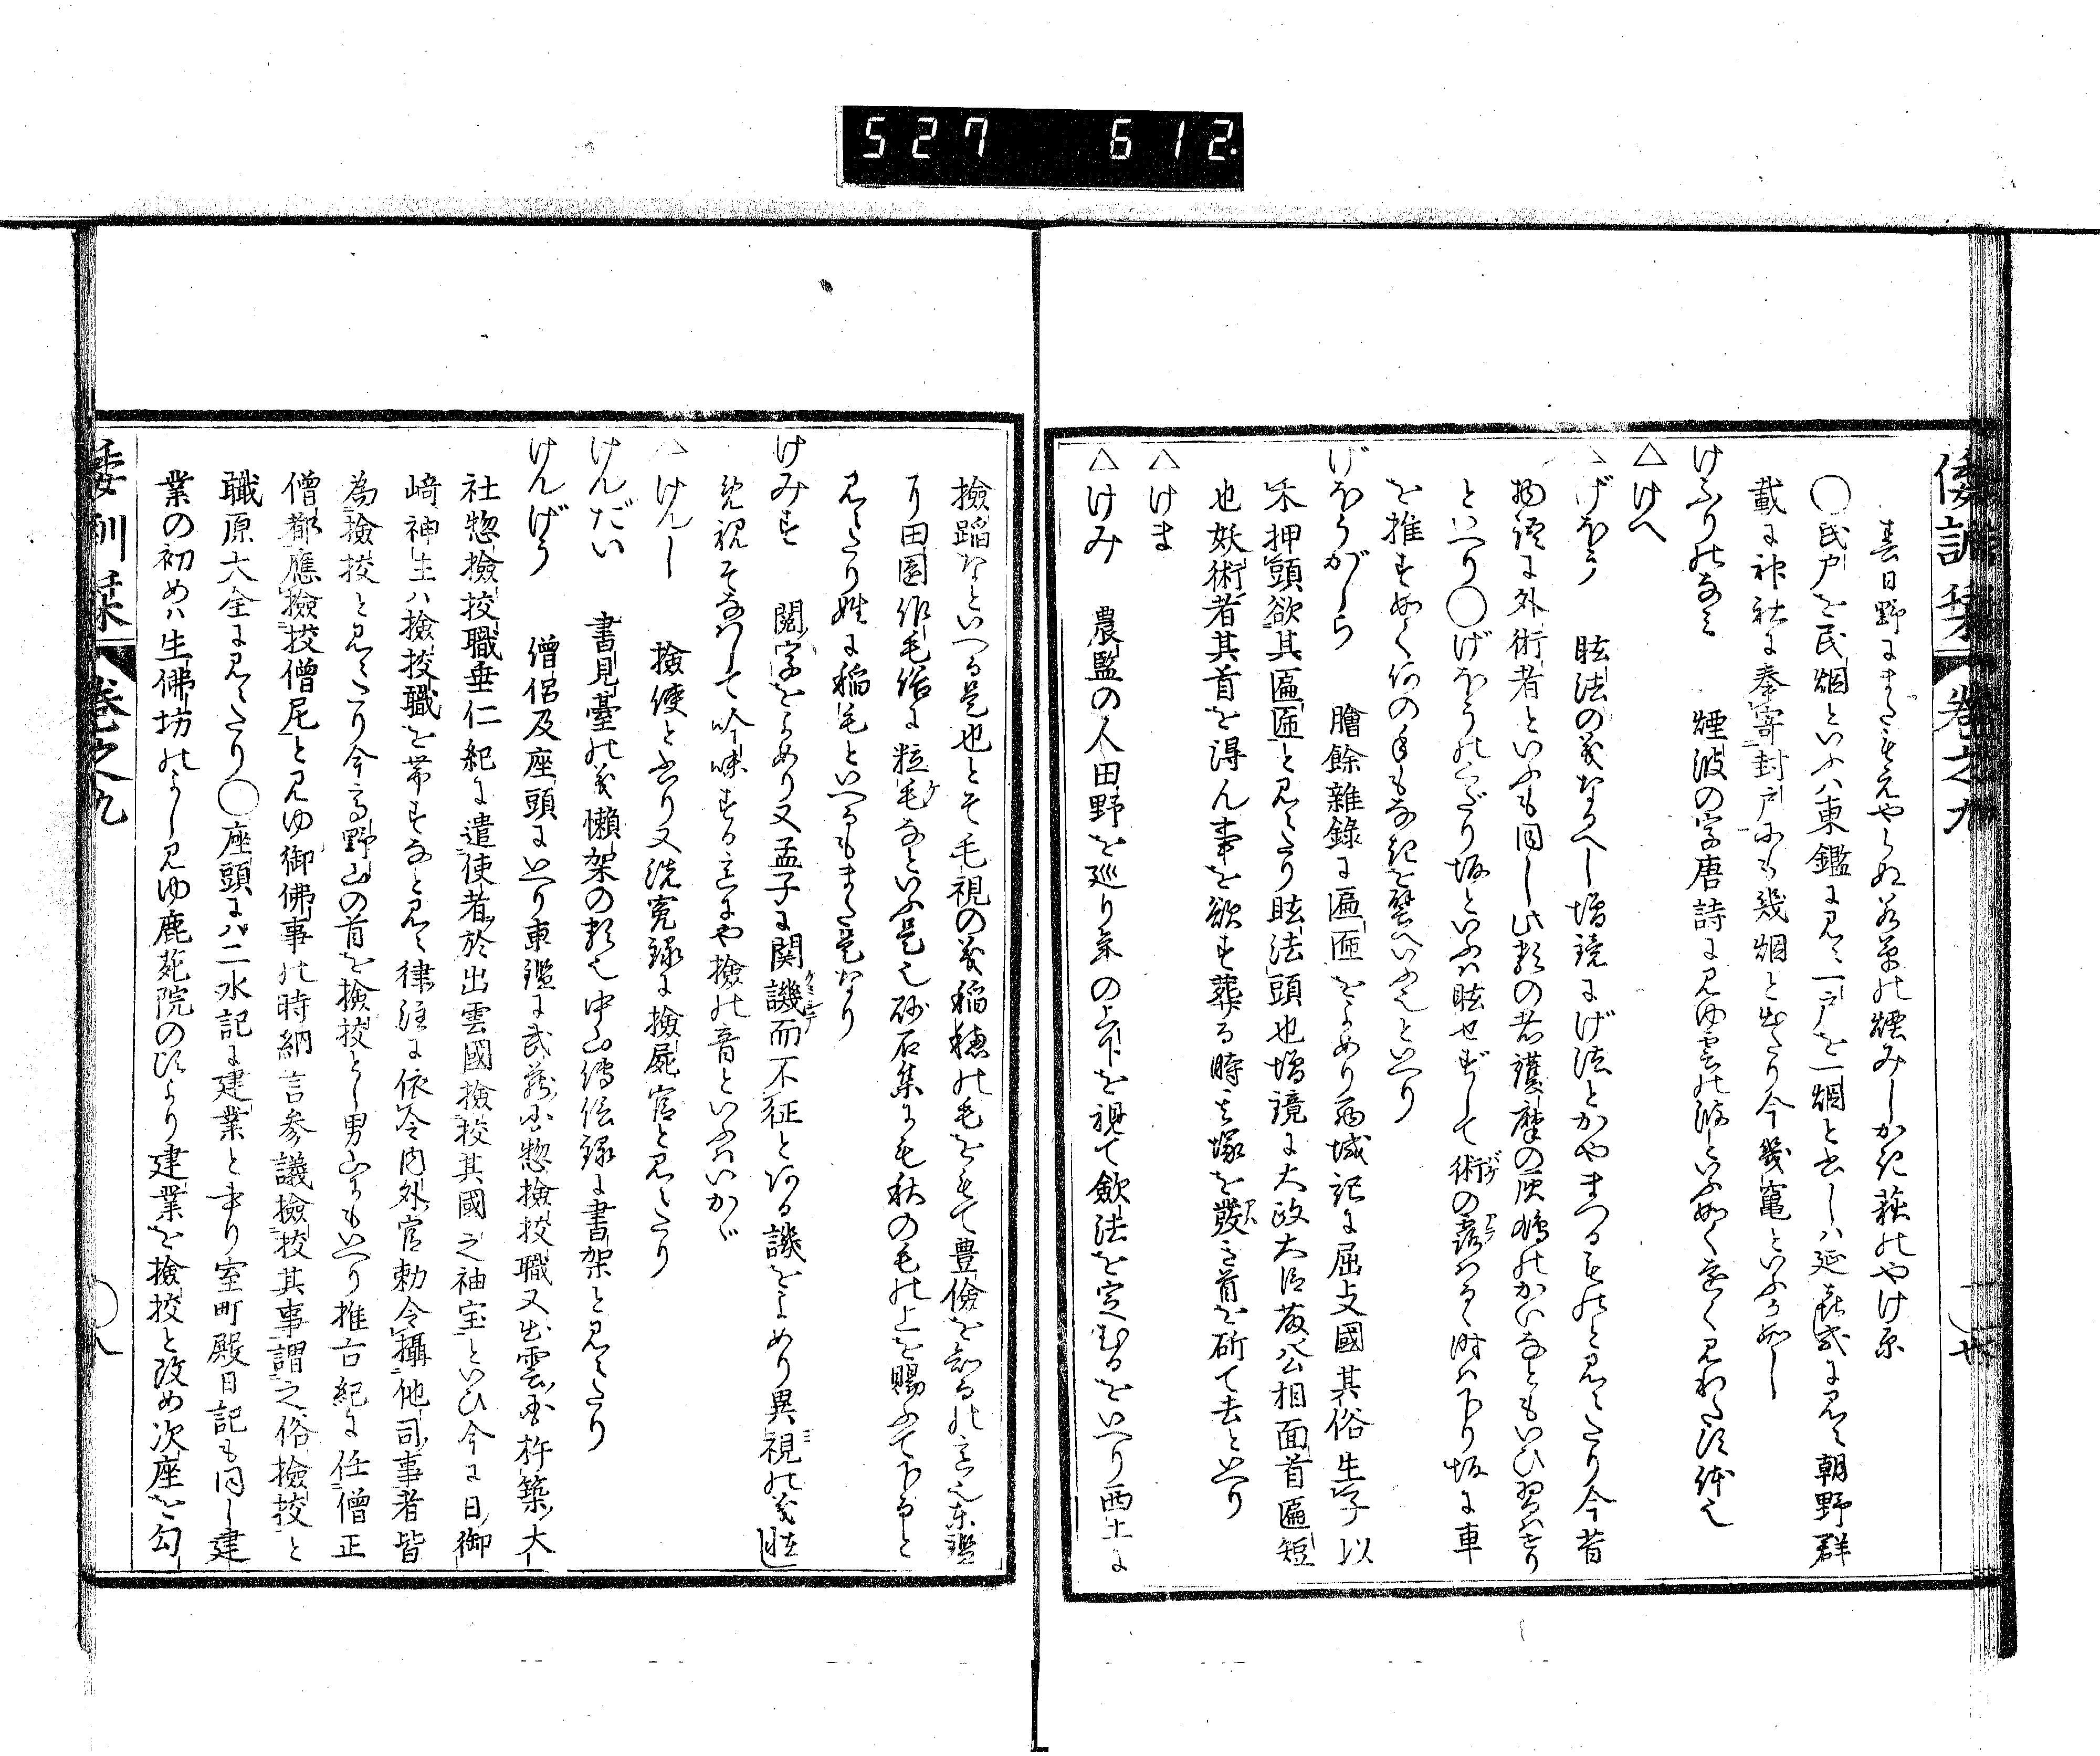 527 612
倭訓栞 巻之九
春日野にまたもえやらぬ若草の煙みしかき荻のやけ原
〇民戸を民烟といふハ東鑑に見え一戸を一烟と書しハ延喜式に見え朝野群
載に神社に奉寄封戸にも幾烟と出たり今幾竈といふか如し
けふりのなみ 煙波の字唐詩に見ゆ雲の波といふ如く遠く見わたす体也
△けへ
△げほう 眩法の義なるへし増鏡にげ法とかやまつるものと見えたり今昔
物語に外術者といふも同し此類の者護摩の灰鳩のかいなともいひ習はせり
といへり〇げほうのくだり坂といふハ眩せずして術の落る時ハ下り坂に車
を推す如く何の手もなきを譬へいふ也といへり
げほうがしら 膾餘雜錄に匾匜をよめり 城記に屈支國其俗生子以
木押頭欲其匾匜と見えたり眩法頭也増鏡に大政大臣 公相面首匾短
也妖術者其首を得ん事を欲す葬る時其塚を發き首を斫て去といへり
△けま
△けみ 農監の人田野を巡り禾の上下を視て歛法を定むるをいへり西土に
撿蹈なといへる是也とそ毛視の義稲穂の毛をもて豊儉を知るの意也東鑑
に田園作毛俗に粒毛なといふ是也砂石集に毛秋の毛の上を賜ふて下ると
見えたり姓に稲毛といへるもまた是なり
けみす 閲字をよめり又孟子に関譏而不征とある譏をよめり異視の義性
 視そなハして吟味する意にや撿の音といふハいかゞ
△けんし 撿使と書り又洗寃録に撿屍官と見えたり
けんだい 書見臺の義懶架の類也中山傳信録に書架と見えたり
けんげう 僧侶及座頭にいへり東鑑に武蔵国惣撿挍職又出雲国杵築大
社惣撿挍職垂仁紀に遣使者於出雲國撿挍其國之神宝といひ今に日御
﨑神主ハ撿挍職を帯すなと見え律注に依令内外官勅令攝他司事者皆
為撿挍と見えたり今高野山の首を撿挍とし男山にもいへり推古紀に任僧正
僧都應撿挍僧尼と見ゆ御佛事の時納言参議撿挍其事謂之俗撿挍と
職原大全に見えたり〇座頭にハ二水記に建業と書り室町殿日記も同し建
業の初めハ生佛坊のよし見ゆ鹿苑院の比より建業を撿挍と改め次座を勾
倭訓栞 巻之九 〇八